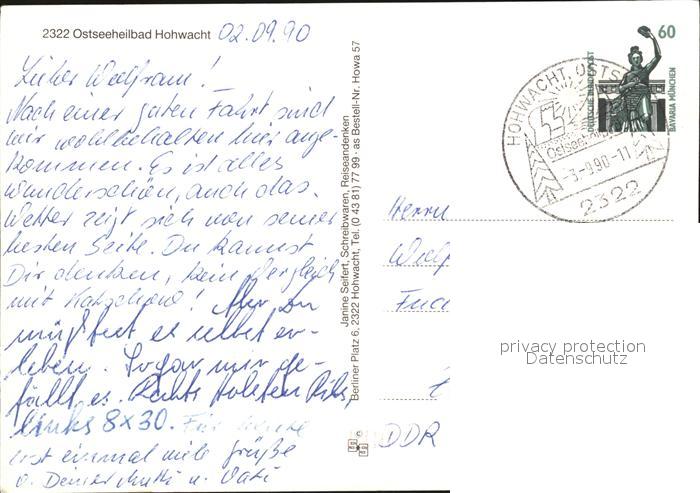 2322 Ostseeheilbad Hohwacht 02.09.90
Lieber Wolfram!
Nach einer guten Fahrt sind
wir wohlbehalten hier ange-
kommen. Es ist alles
wunderschön, auch das
Wetter zeigt sich von seiner
besten Seite. Du kannst
Dir denken, kein Vergleich
mit
müßtest es selbst er-
leben. Sogar mir ge-
fällt es. Rechts Holsten Pils,
links 8x30. Für heute
erst einmal viele Grüße
v. Deiner Mutti u. Vati
Janine Seifert, Schreibwaren, Reiseandenken
Berliner Platz 6, 2322 Hohwacht, Tel. (0 43 81) 77 99 · as Bestell-Nr. Howa 57
60
DEUTSCHE BUNDESPOST
BAVARIA MÜNCHEN
HOHWACHT, OSTS
-3-9.90-11
2322
Herrn
DDR
privacy protection
Datenschutz